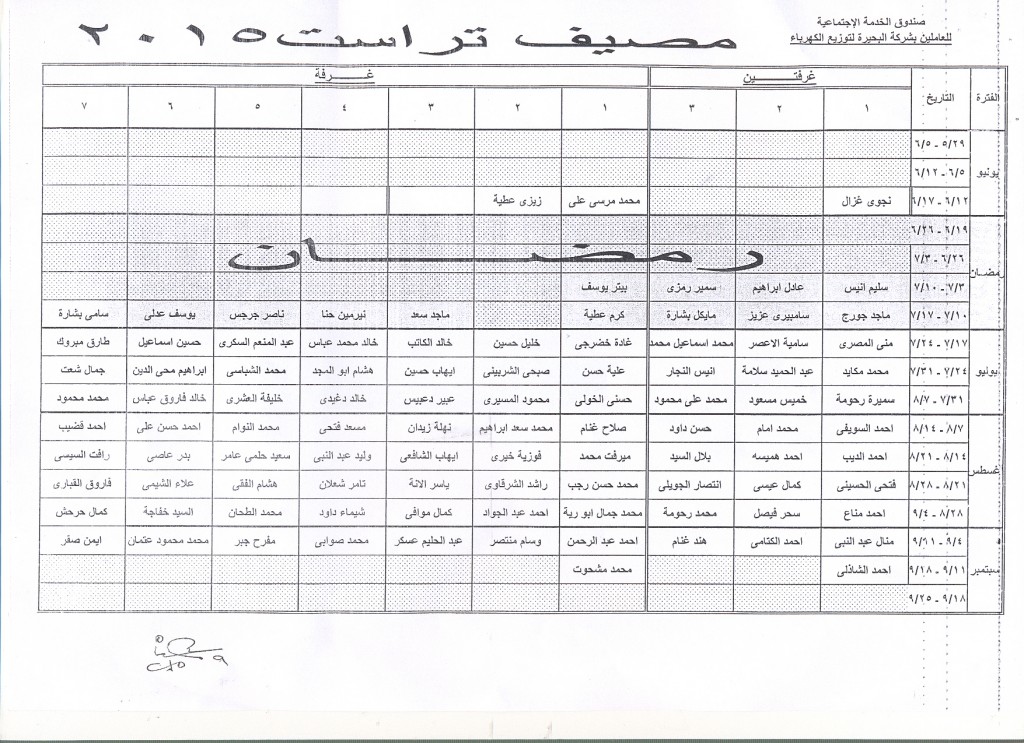 صندوق الخدمة الإجتماعية
للعاملين بشركة البحيرة لتوزيع الكهرباء
مصيف تراست ٢٠١٥
الفترة التاريخ غرفتــين غــرفة
١ ٢ ٣ ١ ٢ ٣ ٤ ٥ ٦ ٧
يونيو
٥/٢٩ - ٦/٥
٦/٥ - ٦/١٢
٦/١٢ - ٦/١٧ نجوى غزال محمد مرسى على زيزى عطية
رمضان
٦/١٩ - ٦/٢٦
٦/٢٦ - ٧/٣
رمضــــان
٧/٣ - ٧/١٠ سليم انيس عادل ابراهيم سمير رمزى بيتر يوسف
٧/١٠ - ٧/١٧ ماجد جورج سامبيرى عزيز مايكل بشارة كرم عطية ماجد سعد نيرمين حنا ناصر جرجس يوسف عدلى سامى بشارة
يوليو
٧/١٧ - ٧/٢٤ منى المصرى سامية الاعصر محمد اسماعيل محمد غادة خضرجى خليل حسين خالد الكاتب خالد محمد عباس عبد المنعم السكرى حسين اسماعيل طارق مبروك
٧/٢٤ - ٧/٣١ محمد مكايد عبد الحميد سلامة انيس النجار علية حسن صبحى الشربينى ايهاب حسين هشام ابو المجد محمد الشباسى ابراهيم محى الدين جمال شعت
٧/٣١ - ٨/٧ سميرة رحومة خميس مسعود محمد على محمود حسنى الخولى محمود المسيرى عبير دعبيس خالد دغيدى خليفة العشرى خالد فاروق عباس محمد محمود
غسطس
٨/٧ - ٨/١٤ احمد السويفى محمد امام حسن داود صلاح غنام محمد سعد ابراهيم نهلة زيدان مسعد فتحى محمد النوام احمد حسن على احمد قضيب
٨/١٤ - ٨/٢١ احمد الديب احمد هميسه بلال السيد ميرفت محمد فوزية خيرى ايهاب الشافعى وليد عبد النبى سعيد حلمى عامر بدر عاصى رافت السيسى
٨/٢١ - ٨/٢٨ فتحى الحسينى كمال عيسى انتصار الجويلى محمد حسن رجب راشد الشرقاوى ياسر الانة تامر شعلان هشام الفقى علاء الشيمى فاروق القبارى
٨/٢٨ - ٩/٤ احمد مناع سحر فيصل محمد رحومة محمد جمال ابو رية احمد عبد الجواد كمال موافى شيماء داود محمد الطحان السيد خفاجة كمال حرحش
سبتمبر
٩/٤ - ٩/١١ منال عبد النبى احمد الكتامى هند غنام احمد عبد الرحمن وسام منتصر عبد الحليم عسكر محمد صوابى مفرح جبر محمد محمود عتمان ايمن صقر
٩/١١ - ٩/١٨ احمد الشاذلى محمد مشحوت
٩/١٨ - ٩/٢٥